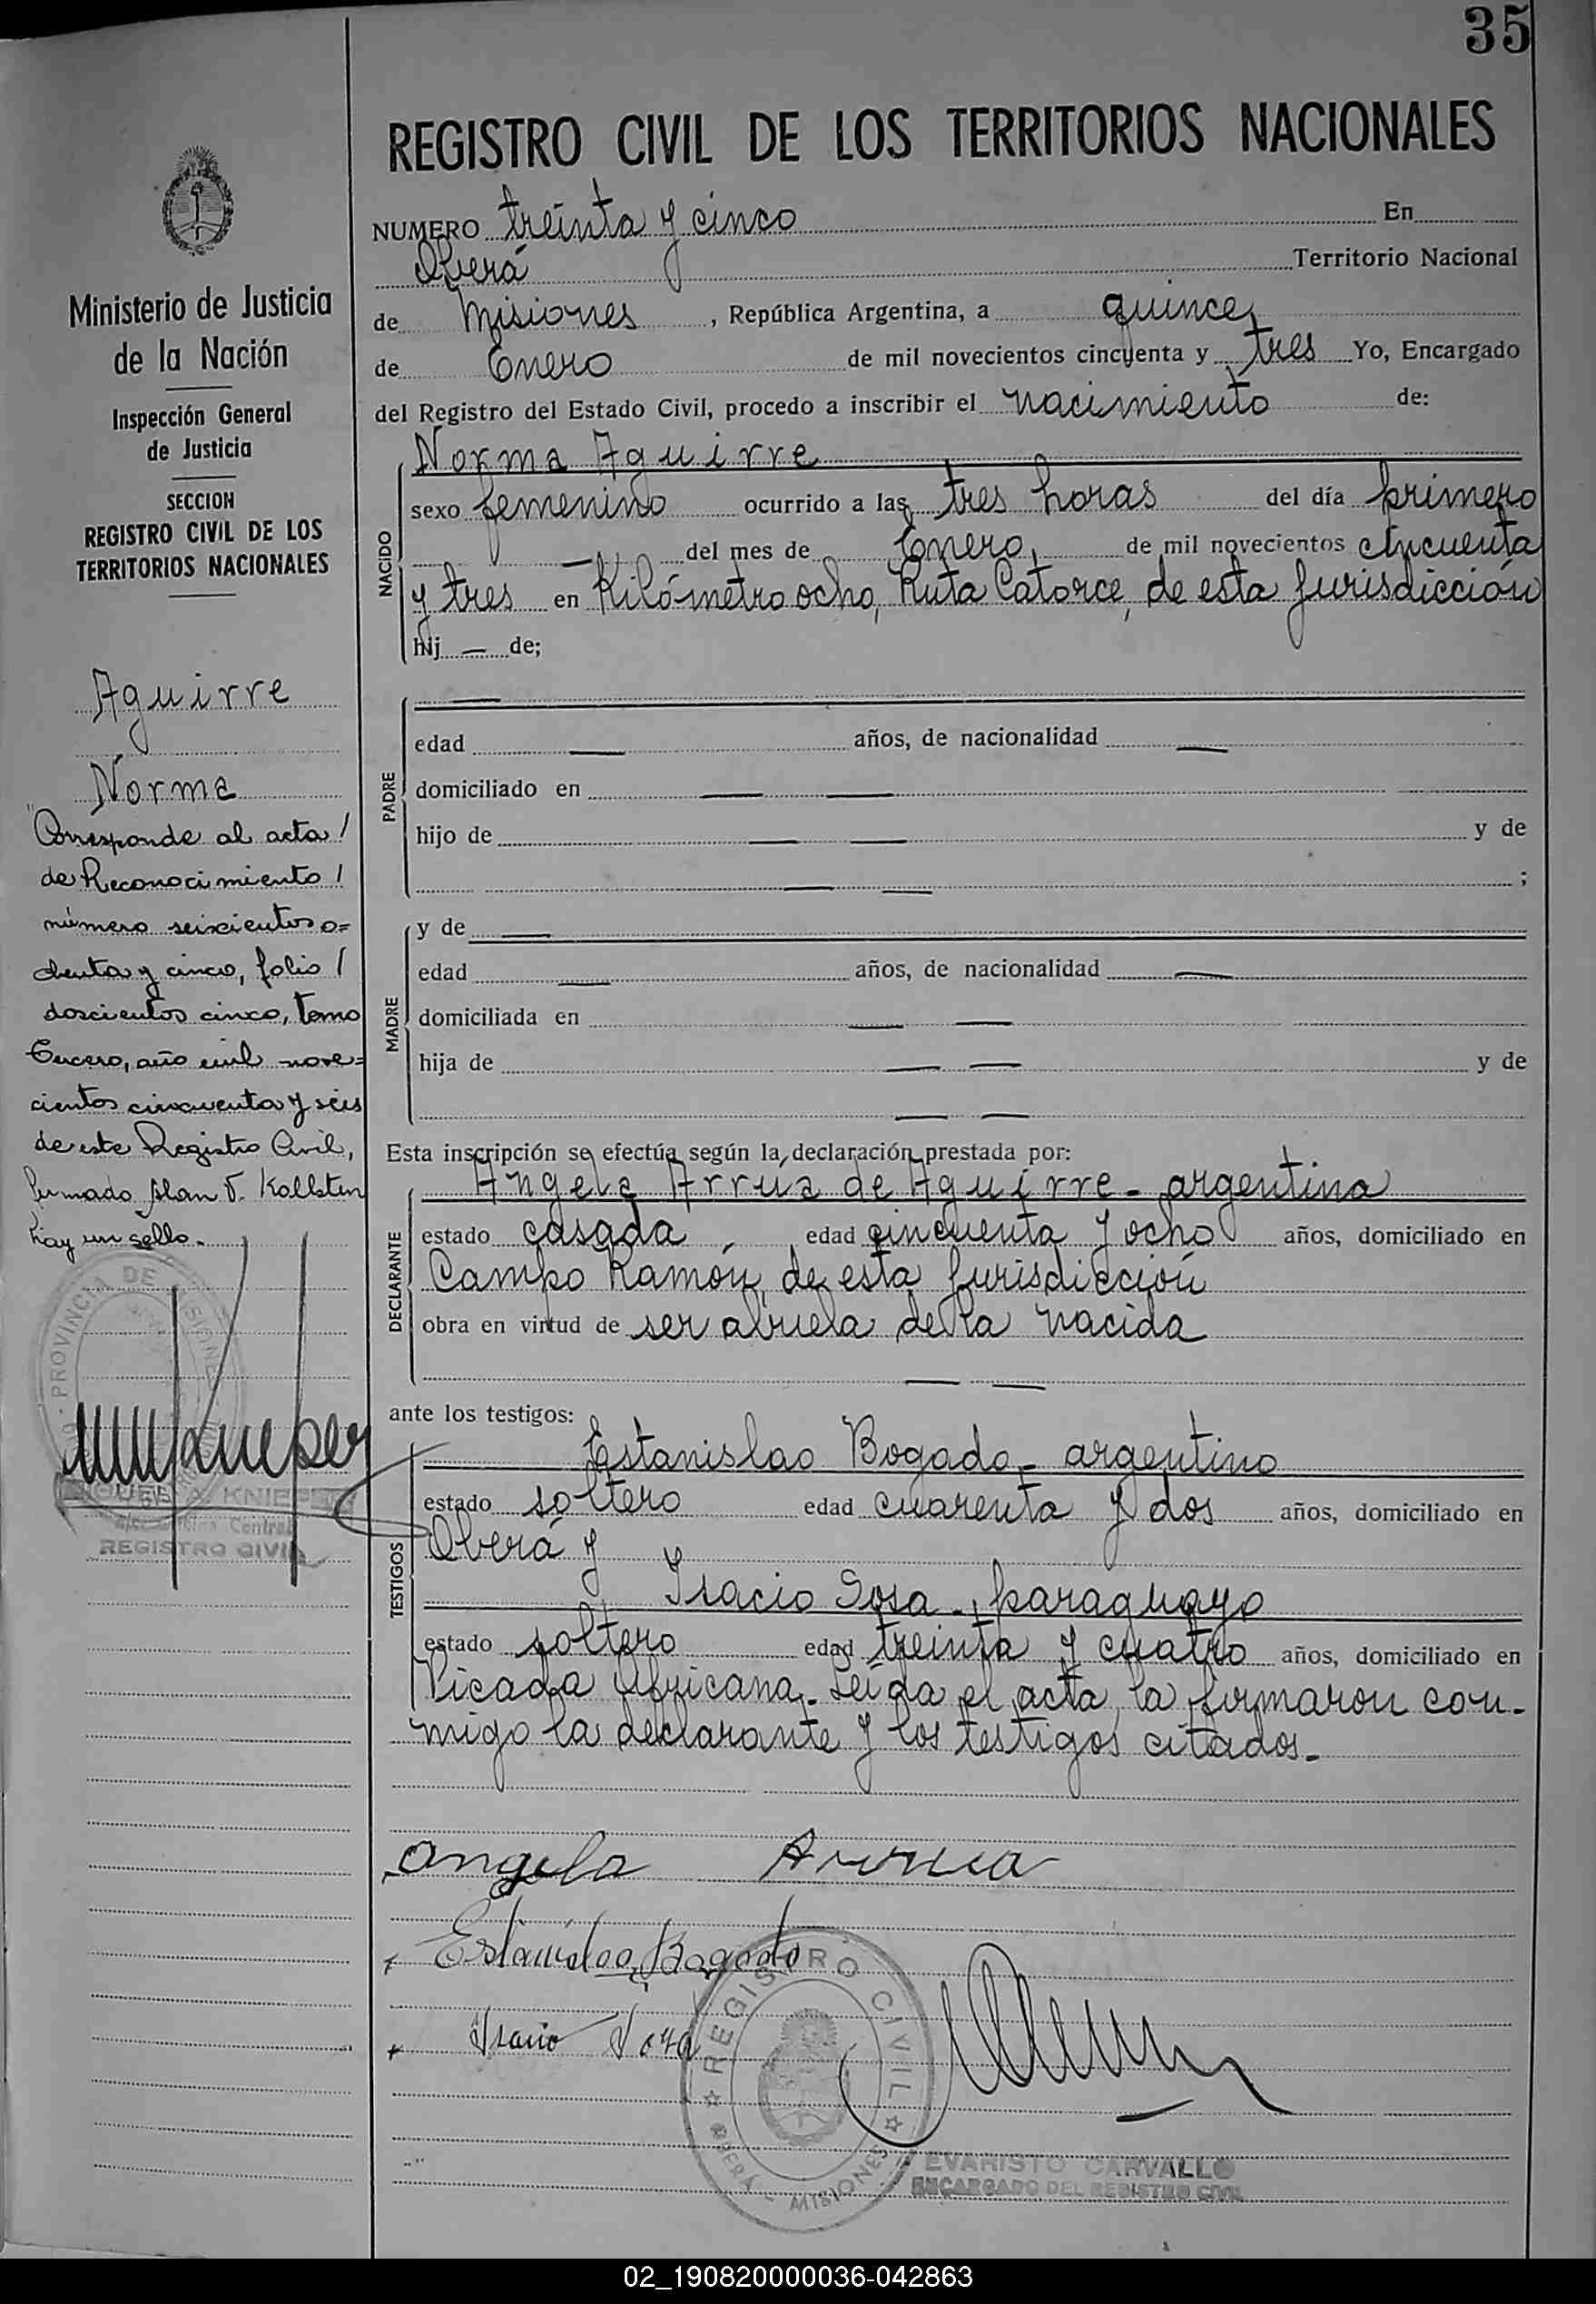 35
REGISTRO CIVIL DE LOS TERRITORIOS NACIONALES
NUMERO treinta y cinco En
Oberá Territorio Nacional
de Misiones, República Argentina, a quince
de Enero de mil novecientos cincuenta y tres Yo, Encargado
del Registro del Estado Civil, procedo a inscribir el nacimiento de:
NACIDO
Norma Aguirre
sexo femenino ocurrido a las tres horas del día primero
— del mes de Enero, de mil novecientos cincuenta
y tres en Kilómetro ocho, Ruta Catorce, de esta jurisdicción
hij — de;
PADRE
—
edad — años, de nacionalidad —
domiciliado en — —
hijo de — — y de
— — ;
MADRE
y de —
edad — años, de nacionalidad —
domiciliada en — —
hija de — — y de
— —
Esta inscripción se efectúa según la declaración prestada por:
DECLARANTE
Angela Arrúa de Aguirre - argentina
estado casada, edad cincuenta y ocho años, domiciliado en
Campo Ramón, de esta jurisdicción
obra en virtud de ser abuela de la nacida
— —
ante los testigos:
TESTIGOS
Estanislao Bogado - argentino
estado soltero edad cuarenta y dos años, domiciliado en
Oberá y
Isacio Sosa -, paraguayo
estado soltero edad treinta y cuatro años, domiciliado en
Picada Africana. Leída el acta, la firmaron con-
migo la declarante y los testigos citados.-
Angela Arrua
Estanislao Bogado
Isacio Sosa
REGISTRO CIVIL
OBERÁ - MISIONES
EVARISTO CARVALLO
ENCARGADO DEL REGISTRO CIVIL
Ministerio de Justicia
de la Nación
Inspección General
de Justicia
SECCION
REGISTRO CIVIL DE LOS
TERRITORIOS NACIONALES
Aguirre
Norma
"Corresponde al acta/
de Reconocimiento/
número seiscientos o=
chenta y cinco, folio/
doscientos cinco, tomo
tercero, año mil nove=
cientos cincuenta y seis
de este Registro Civil,
firmado Alan V. Kallsten
hay un sello.-
PROVINCIA DE MISIONES
Oficina Central
REGISTRO CIVIL
02_190820000036-042863